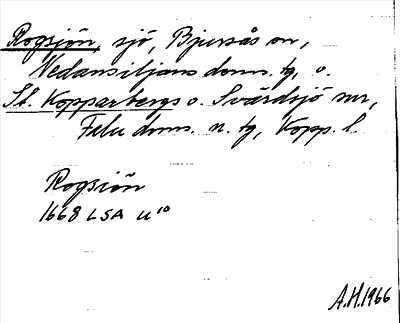 Rogsjön, sjö, Bjursås sn,
Nedansiljans doms. tg, o.
St. Kopparbergs o. Svärdsjö snr,
Falu doms. n. tg, Kopp. l.
Rogsiön
1668 LSA U¹⁰
A.H.1966